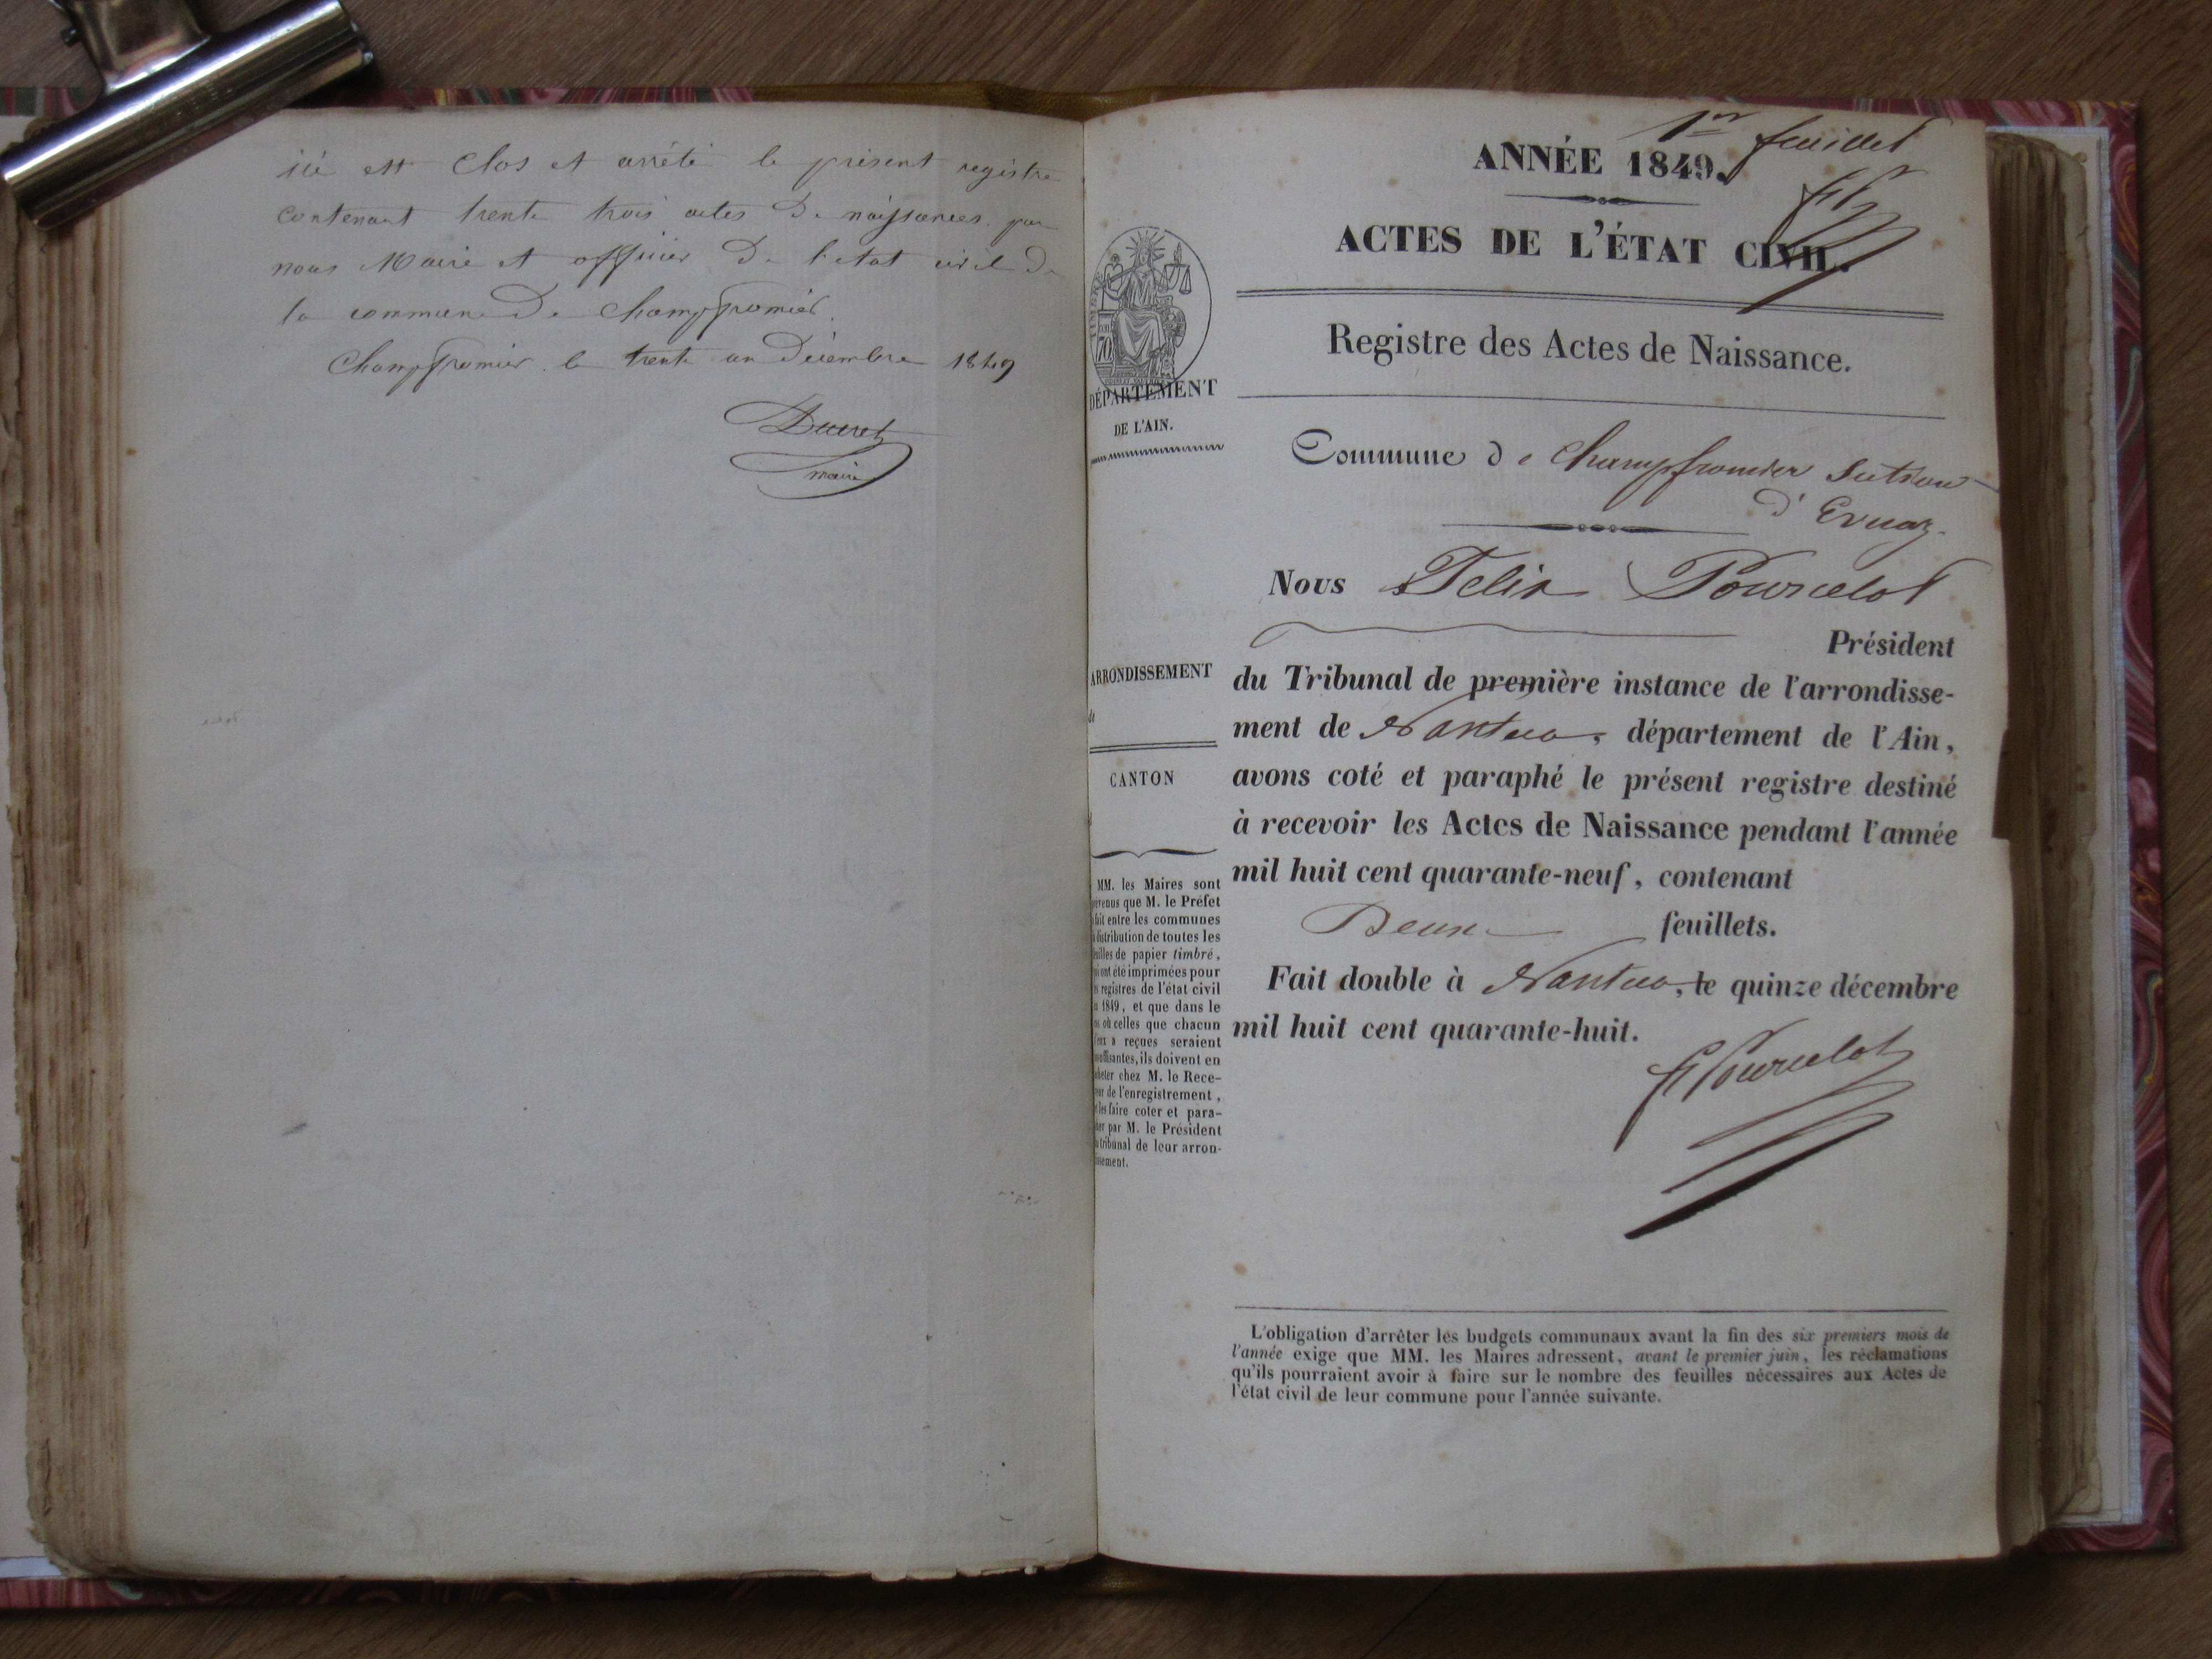 ici est Clos et arrêté le présent registre
contenant trente trois actes de naissances par
nous Maire et officier de l'etat civil de
la commune de Champfromier.
Champfromier le trente un Décembre 1849
Ducret
maire
1er feuillet
ANNÉE 1849.
ACTES DE L'ÉTAT CIVIL.
Registre des Actes de Naissance.
DÉPARTEMENT
DE L'AIN.
Commune de Champfromier Section
d'Evuaz.
Nous Felix Pourcelot
Président
du Tribunal de première instance de l'arrondisse-
ment de Nantua, département de l'Ain,
avons coté et paraphé le présent registre destiné
à recevoir les Actes de Naissance pendant l'année
mil huit cent quarante-neuf, contenant
Deux feuillets.
Fait double à Nantua, le quinze décembre
mil huit cent quarante-huit.
F Pourcelot
ARRONDISSEMENT
de
CANTON
MM. les Maires sont
que M. le Préfet
fait entre les communes
distribution de toutes les
de papier timbré,
ont été imprimées pour
registres de l'état civil
1849, et que dans le
où celles que chacun
a reçues seraient
ils doivent en
chez M. le Rece-
de l'enregistrement,
les faire coter et para-
par M. le Président
tribunal de leur arron-
L'obligation d'arrêter les budgets communaux avant la fin des six premiers mois de
l'année exige que MM. les Maires adressent, avant le premier juin, les réclamations
qu'ils pourraient avoir à faire sur le nombre des feuilles nécessaires aux Actes de
l'état civil de leur commune pour l'année suivante.